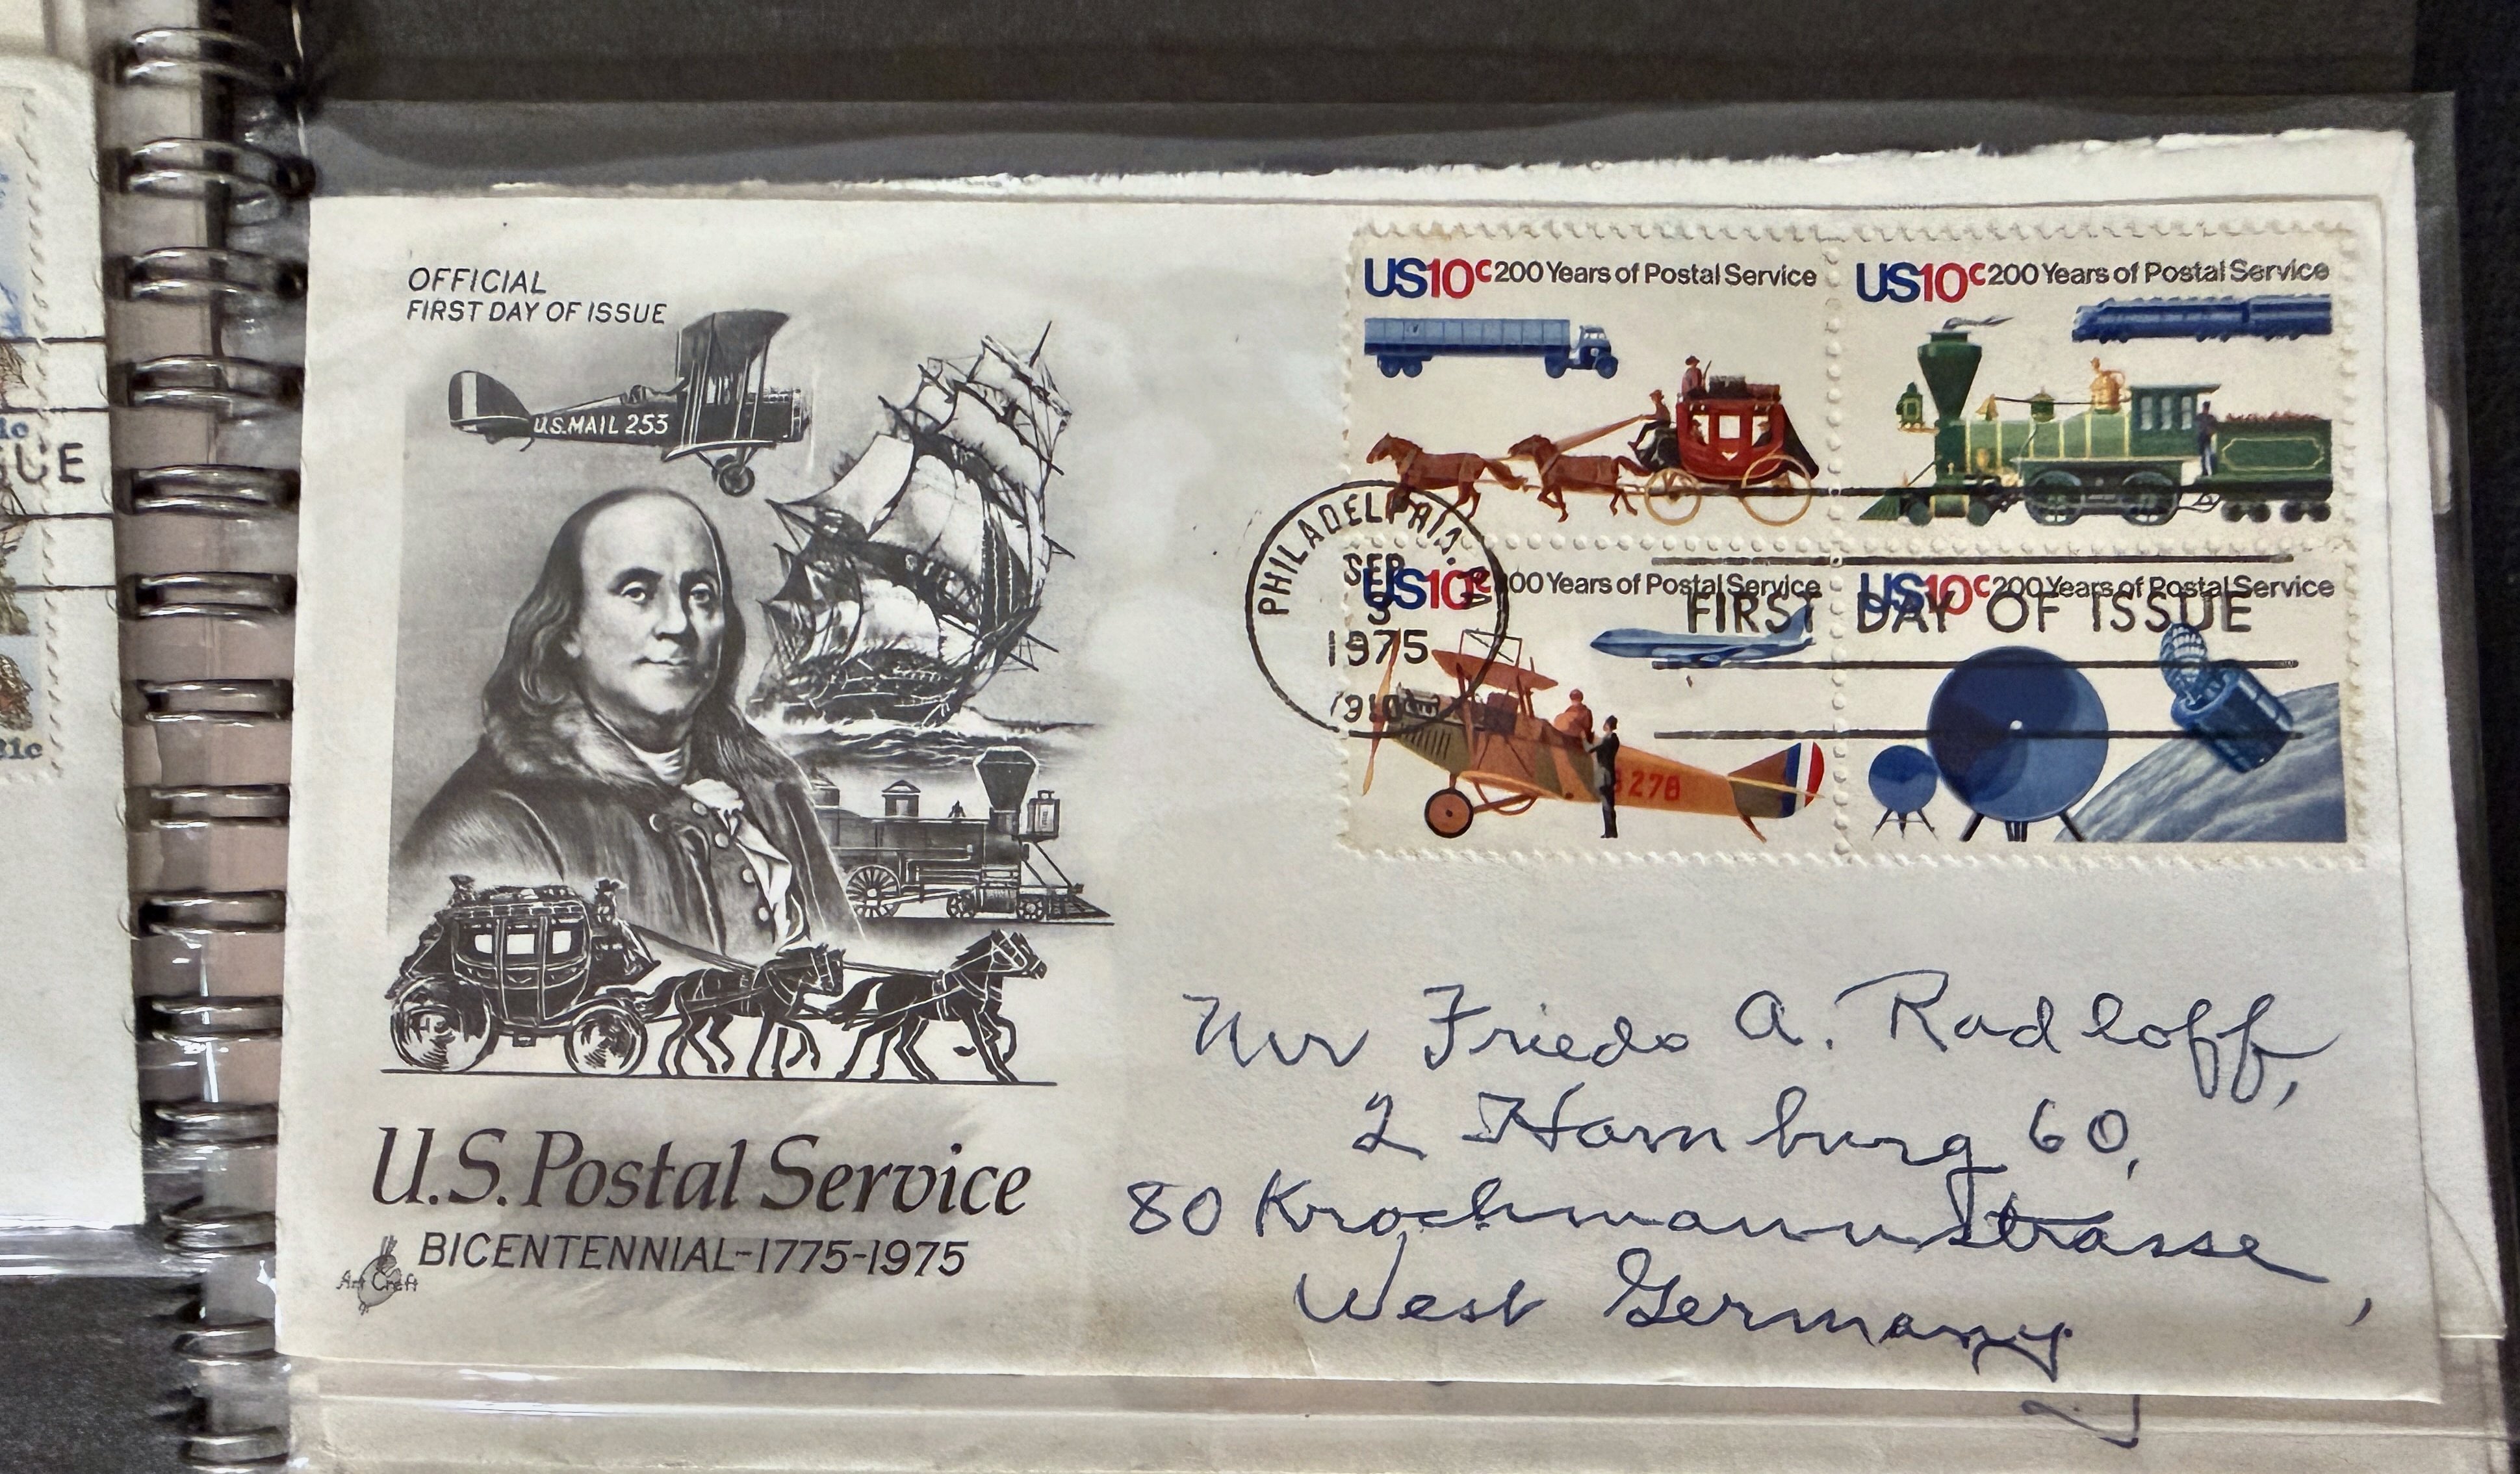 OFFICIAL
FIRST DAY OF ISSUE
U.S.MAIL 253
U.S. Postal Service
BICENTENNIAL-1775-1975
Art Craft
US10c 200 Years of Postal Service
US10c 200 Years of Postal Service
US10c 200 Years of Postal Service
US10c 200 Years of Postal Service
PHILADELPHIA
SEP
3
1975
19104
FIRST DAY OF ISSUE
Mr Friedo A. Radloff,
2 Hamburg 60,
80 Krochmannstrasse,
West Germany